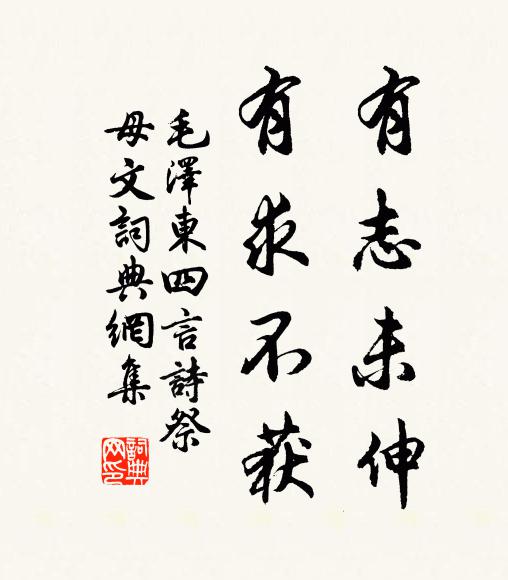 有志未伸
有求不获
毛澤東四言詩祭
母文詞典網集
詞典
网印